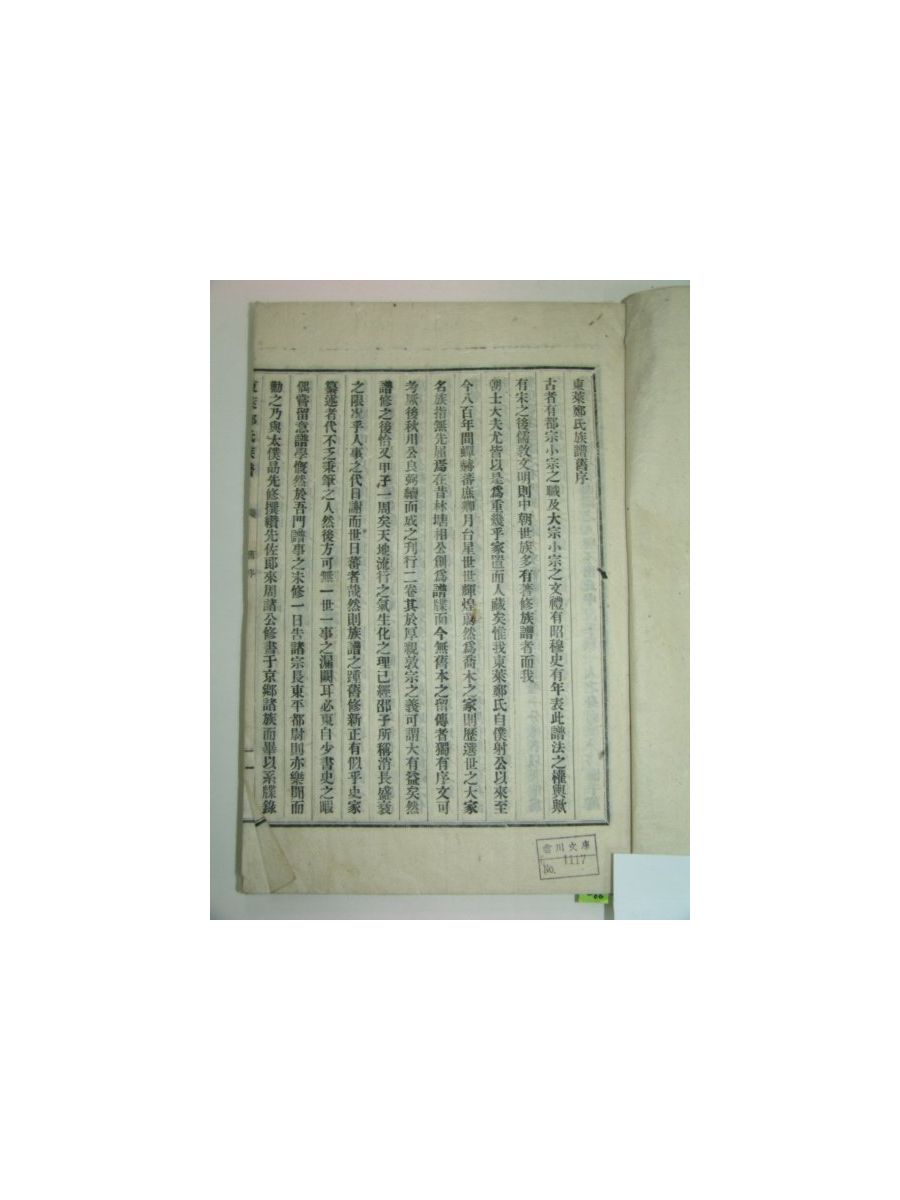 東萊鄭氏族譜舊序
古者有都宗小宗之職及大宗小宗之文禮有昭穆史有年表此譜法之權輿歟
有宋之後儒教文明則中朝世族多有著修族譜者而我
朝士大夫尤皆以是爲重幾乎家置而人藏矣惟我東萊鄭氏自僕射公以來至
今八百年間蟬赫蕃庶卿月台星世世輝煌蔚然爲喬木之家則歷選世之大家
名族指無先屈焉在昔林塘相公創爲譜牒而今無舊本之留傳者獨有序文可
考厥後秋川公良弼續而成之刊行二卷其於厚親敦宗之義可謂大有益矣然
譜修之後恰又甲子一周矣天地流行之氣生化之理已經邵子所稱消長盛衰
之限况乎人事之代目謝而世日蕃者哉然則族譜之踵舊修新正有似乎史家
纂述者代不乏秉筆之人然後方可無一世一事之漏闕耳必東自少書史之暇
偶嘗留意譜學慨然於吾門譜事之未修一日告諸宗長東平都尉則亦樂聞而
勸之乃與太僕勗先修撰纘先佐郞來周諸公修書于京鄕諸族而畢以系牒錄
東萊鄭氏族譜 舊序 一
川文庫
No. 1117